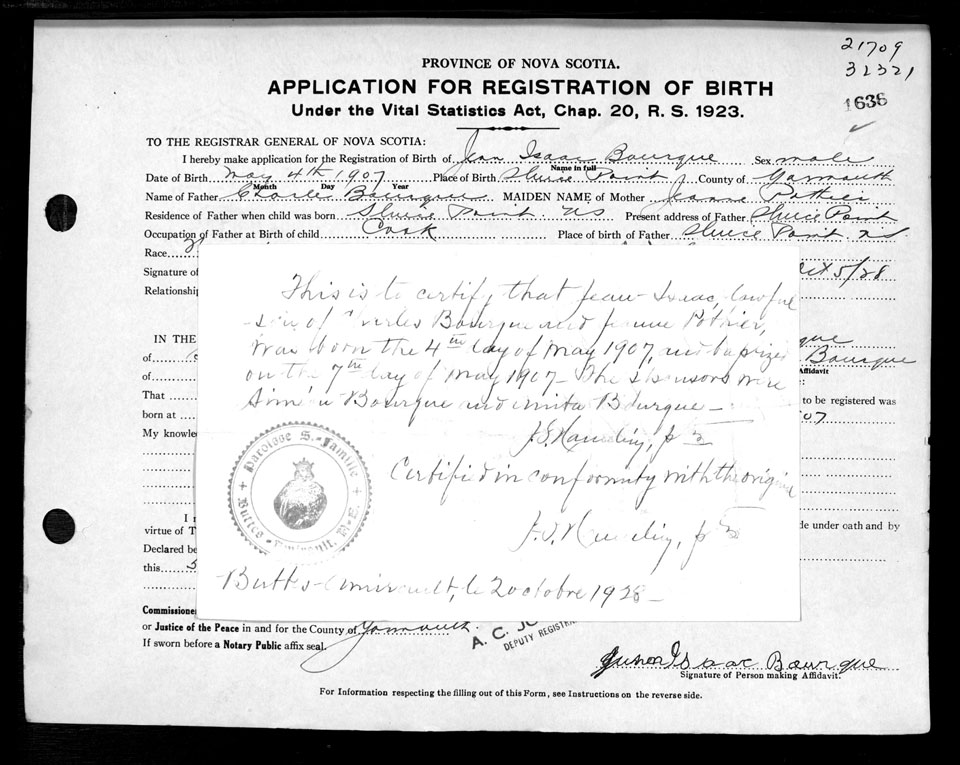 21709
32321
1636
PROVINCE OF NOVA SCOTIA.
APPLICATION FOR REGISTRATION OF BIRTH
Under the Vital Statistics Act, Chap. 20, R. S. 1923.
TO THE REGISTRAR GENERAL OF NOVA SCOTIA:
I hereby make application for the Registration of Birth of Jean Isaac Bourque Sex male
Name in full
Date of Birth May 4th 1907 Place of Birth Sluice Point County of Yarmouth
Month Day Year
Name of Father Charles Bourque MAIDEN NAME of Mother Jeanne Pothier
Residence of Father when child was born Sluice Point NS Present address of Father Sluice Point
Occupation of Father at Birth of child Cook Place of birth of Father Sluice Point NS
Race
Signature of Oct 5/28
Relationship
This is to certify that Jean-Isaac, lawful
son of Charles Bourque and Jeanne Pothier,
was born the 4th day of May 1907, and baptized
on the 7th day of May 1907 - The sponsors were
Bourque and Bourque -
Certified in conformity with the original
Paroisse S.-Famille
Buttes-Amirault, N.E.
Buttes-Amirault, le 2 octobre 1928 -
IN THE
of Bourque
of Affidavit
That to be registered was
born at 07
My knowle
virtue of T de under oath and by
Declared be
this 5
Commissioner
or Justice of the Peace in and for the County of Yarmouth
If sworn before a Notary Public affix seal.
A. C. JO
DEPUTY REGISTRA
Isaac Bourque
Signature of Person making Affidavit.
For Information respecting the filling out of this Form, see Instructions on the reverse side.